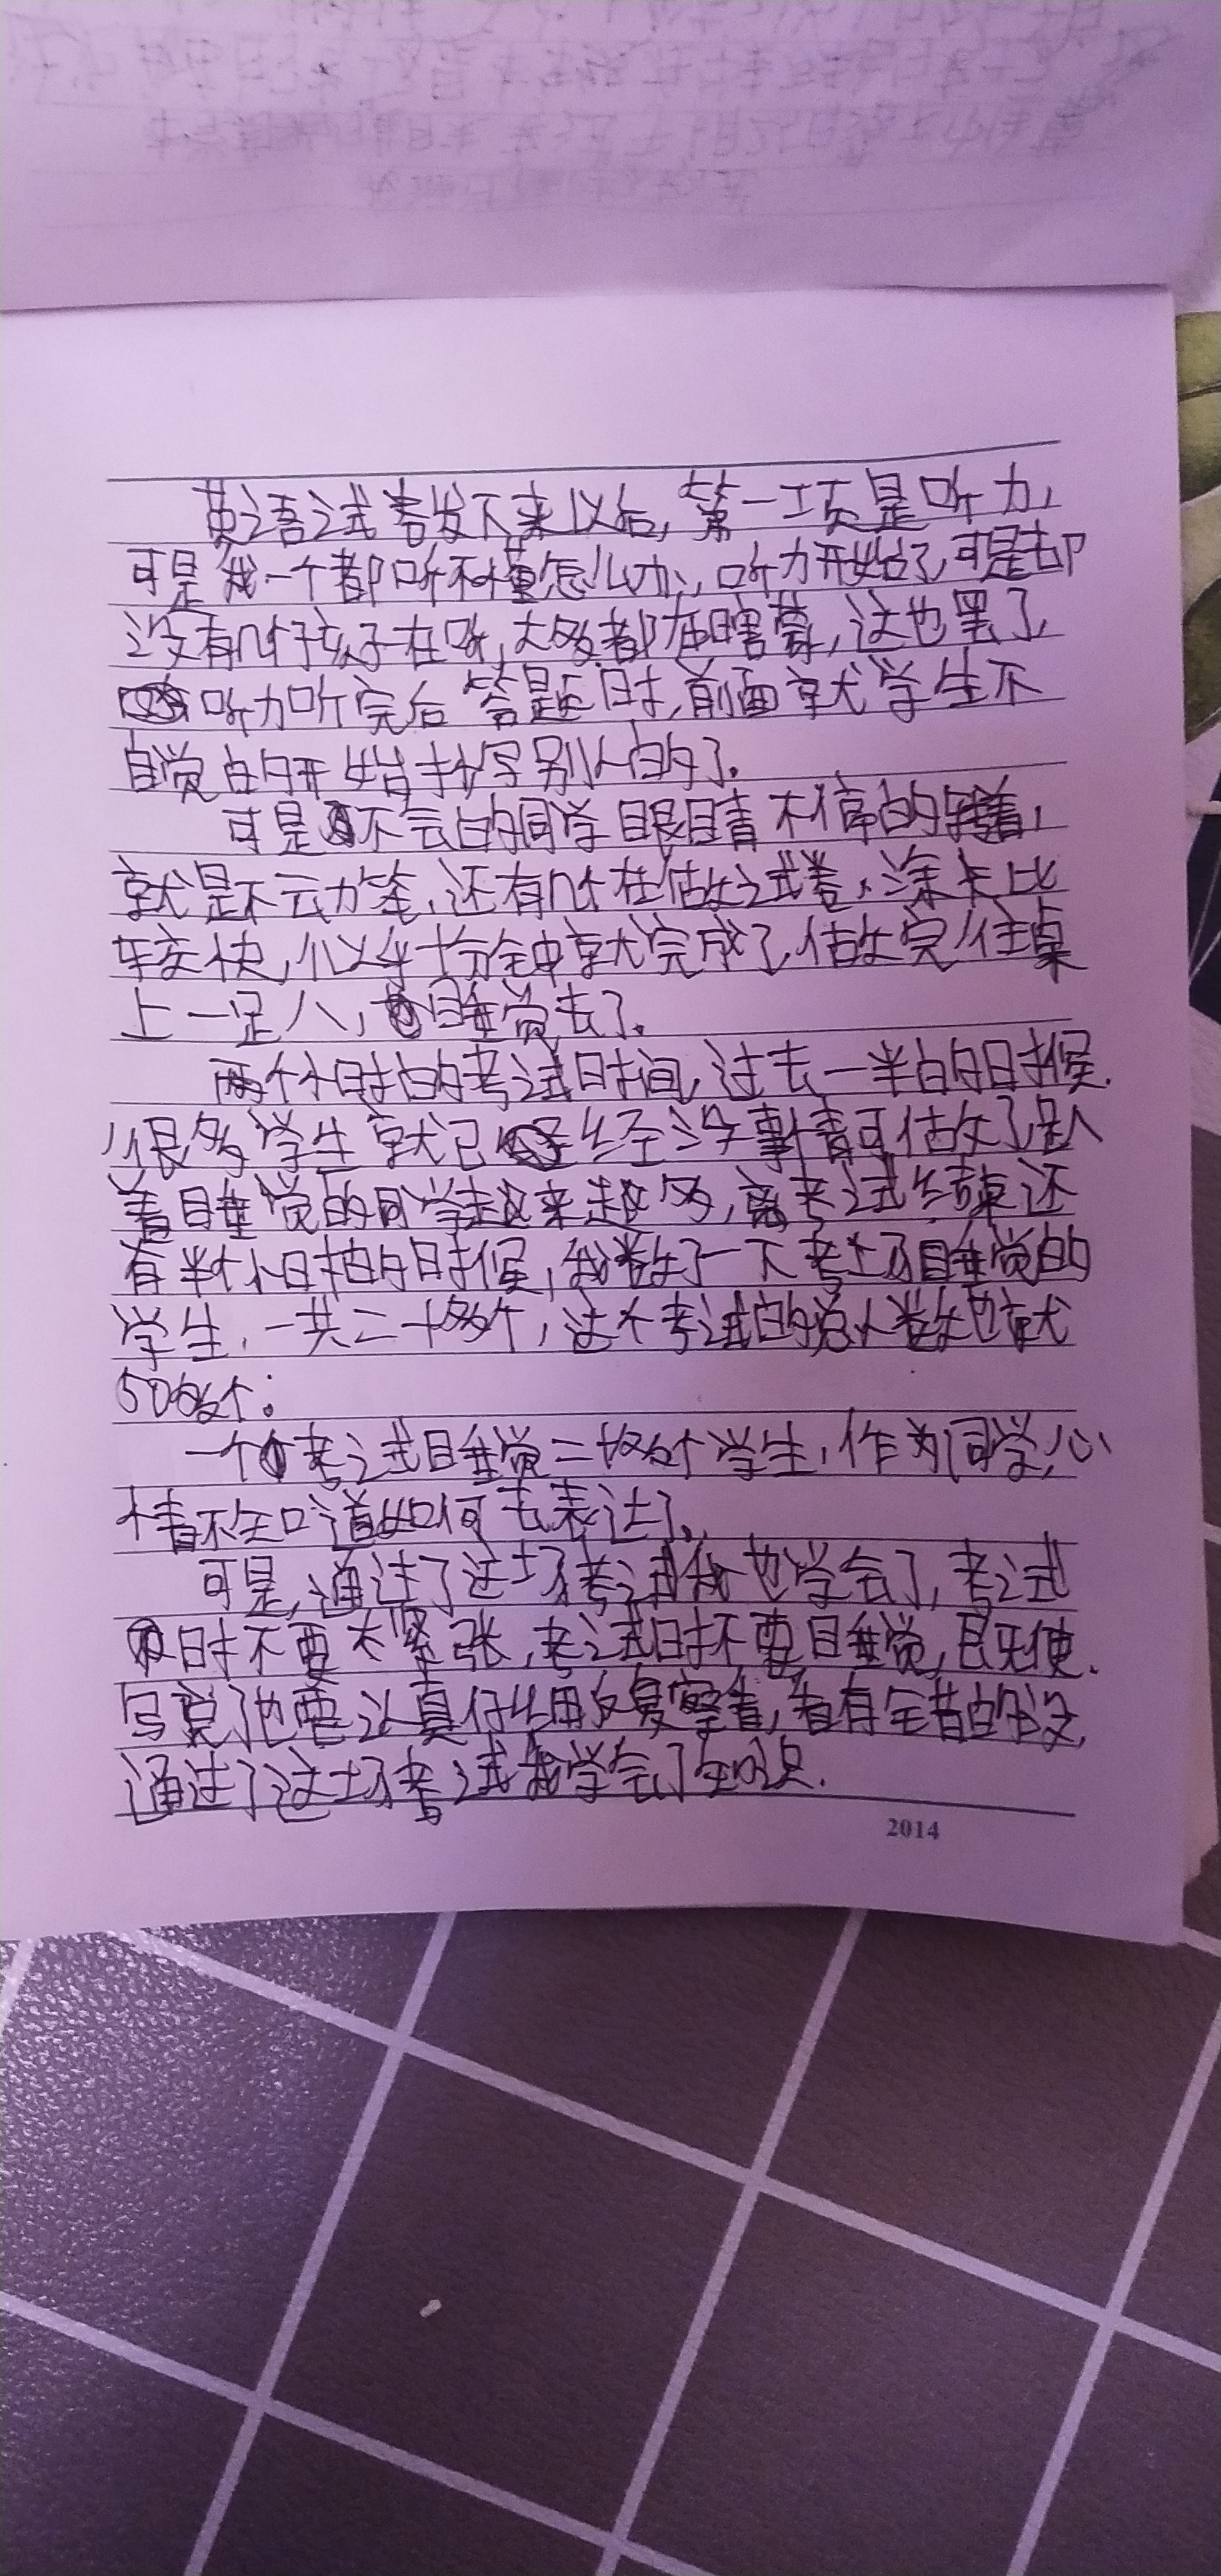 英语试卷发下来以后,第一项是听力,
可是我一个都听不懂怎么办,听力开始了,可是却
没有几个孩子在听,大多都在瞎蒙,这也罢了,
听力听完后答题时,前面就学生不
自觉的开始抄写别人的了.
可是不会的同学眼睛不停的转着,
就是不云力笔,还有几个在做试卷,涂卡比
较快,八以乎十分钟就完成了,做完往桌
上一趴,睡觉去了.
两个小时的考试时间,过去一半的时候.
很多学生就已经没事情可做了,趴
着睡觉的同学越来越多,离考试结束还
有半个小时的时候,我数了一下考场睡觉的
学生,一共二十多个,这个考试的总人数也就
50多个.
一个考试睡觉二十多个学生,作为同学,心
情不知道如何去表达了.
可是,通过了这场考试我也学会了,考试
时不要太紧张,考试时不要睡觉,即使.
写完了也要认真仔细反复察看,看有错的没,
通过了这场考试我学会了知识.
2014